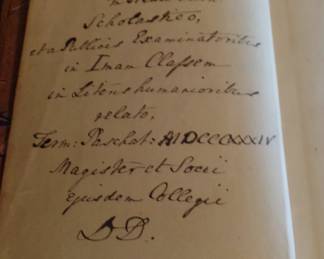 Scholastico,
et a Publicis Examinatoribus
in Imam Classem
in Literis humanioribus
relato,
Term: Paschat: MDCCCXXXIV
Magister et Socii
ejusdem Collegii
D.D.